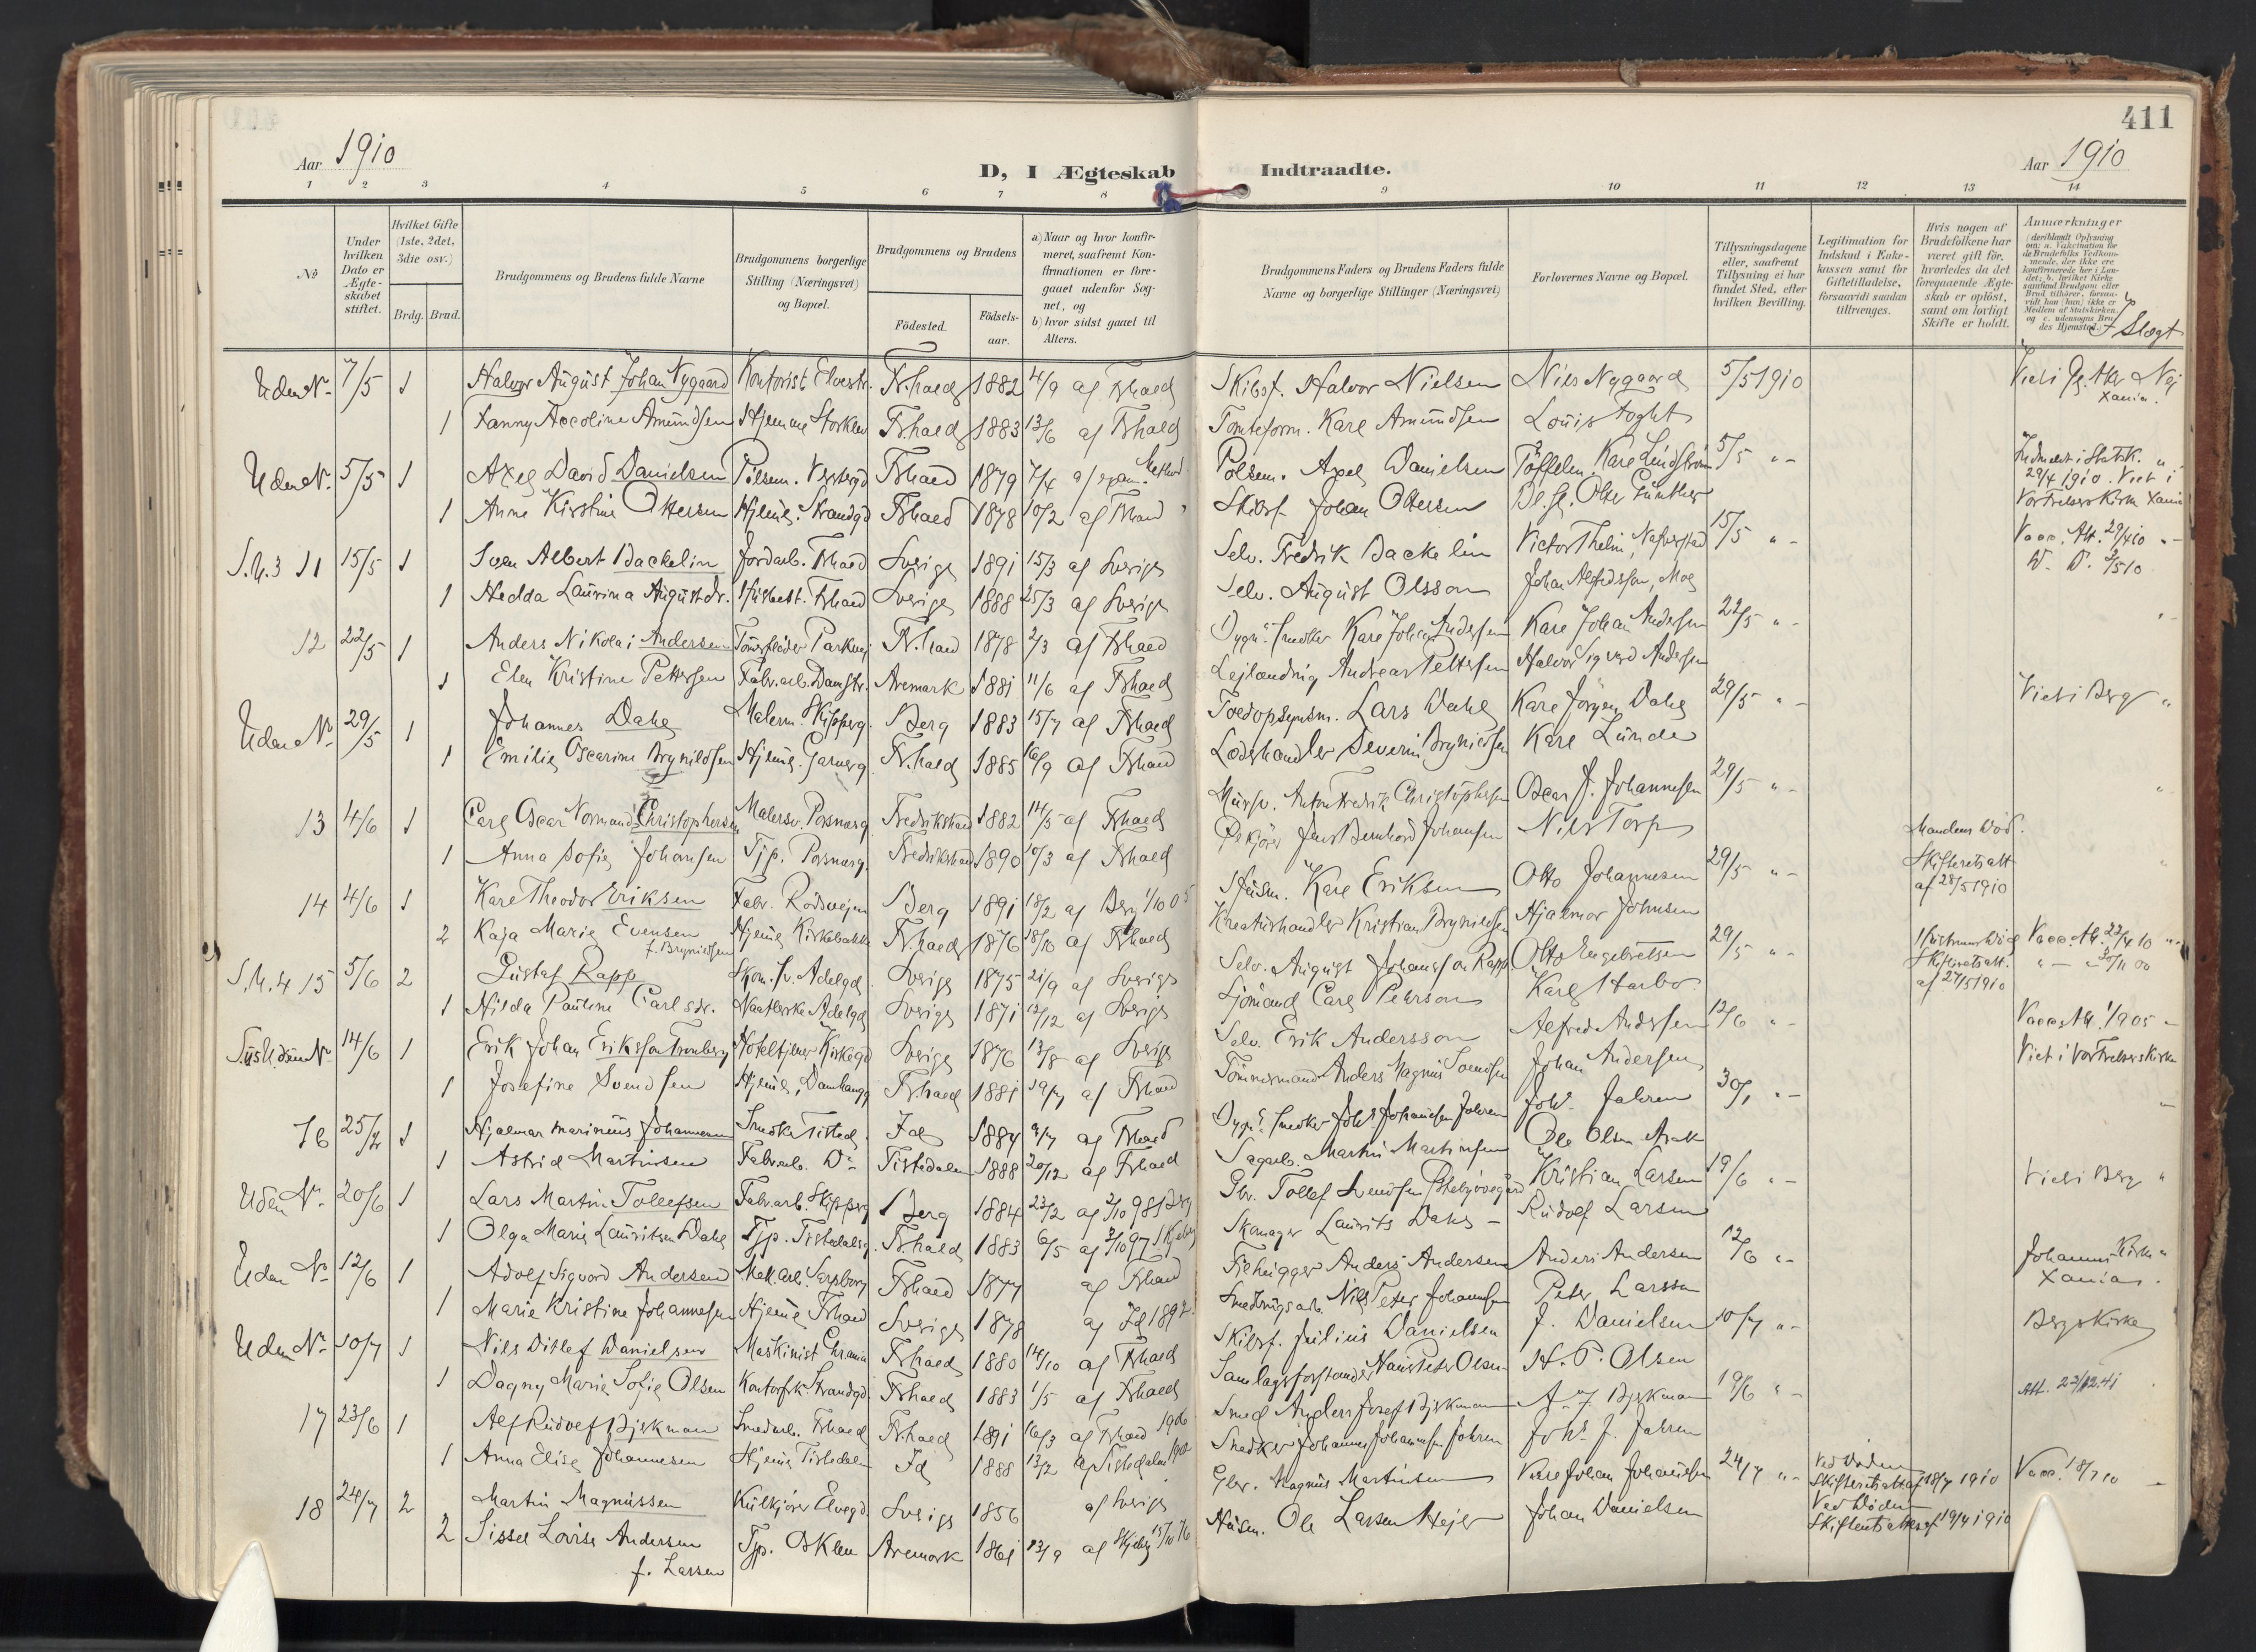 411
Aar 1910
D, I Ægteskab Indtraadte.
Aar 1910
1 2 3 4 5 6 7 8 9 10 11 12 13 14
No
Under hvilken Dato er Ægteskabet stiftet.
Hvilket Gifte (1ste, 2det, 3die osv.)
Brdg. Brud.
Brudgommens og Brudens fulde Navne
Brudgommens borgerlige Stilling (Næringsvei) og Bopæl.
Brudgommens og Brudens
Födested.
Födselsaar.
a) Naar og hvor konfirmeret, saafremt Konfirmationen er foregaaet udenfor Sognet, og
b) hvor sidst gaaet til Alters.
Brudgommens Faders og Brudens Faders fulde Navne og borgerlige Stillinger (Næringsvei)
Forlovernes Navne og Bopæl.
Tillysningsdagene eller, saafremt Tillysning ei har fundet Sted, efter hvilken Bevilling.
Legitimation for Indskud i Enkekassen samt for Giftetilladelse, forsaavidt saadan tiltrænges.
Hvis nogen af Brudefolkene har været gift för, hvorledes da det foregaaende Ægteskab er oplöst, samt om lovligt Skifte er holdt.
Anmærkninger
I Slægt
Uden No 7/5 1 Halvor August Johan Nygaard Kontorist Elvestr. Fr.hald 1882 4/9 af Frhald Skibsf. Halvor Nielsen Nils Nygaard 5/5 1910 Viet i Gl. Aker Nej Xania.
1 Fanny Accoline Amundsen Hjemme Fr.hald 1883 13/6 af Frhald Tomteform. Karl Amundsen Louis Vogt
Uden No 5/5 1 Axel David Danielsen Pölsem. Vestergd Frhald 1879 7/4 af Pölsem. Axel Danielsen Karl Lindström 5/5 " - Indmeldt i Statsk. 29/4 1910. Viet i Vor Frelsers Kirke Xania
1 Anne Kirstine Ottersen Hjemme. Strandgd Frhald 1878 10/2 af Frhald Skibsf Johan Ottersen Günther
S.M.3 11 15/5 1 Sven Albert Backelin Jordarb. Frhald Sverige 1891 15/3 af Sverige Selv. Fredrik Backelin Victor Thelin, Nafverstad 15/5 " - Vacc. Att. 29/4 10
1 Hedda Laurina Augustdr. Frhald Sverige 1888 25/3 af Sverige Selv. August Olsson Johan Alfredsson, Mos
12 22/5 1 Anders Nikolai Andersen Parkvej Fr.hald 1878 2/3 af Frhald Snedker Karl Johan Andersen Karl Johan Andersen 22/5 " -
1 Elen Kristine Pettersen Fabr.arb. Damstr. Aremark 1881 11/6 af Frhald Lejlænding Andreas Pettersen Halvor Sigurd Andersen
Uden No 29/5 1 Johannes Dahl Malerm. Skipperg. Berg 1883 15/7 af Frhald Toldopsynsm. Lars Dahl Karl Jörgen Dahl 29/5 " - Viet i Berg "
1 Emilie Oscarine Brynildsen Hjemme. Garverg. Fr.hald 1885 16/9 af Frhald Læderhandler Severin Brynildsen Karl Lunde
13 4/6 1 Carl Oscar Normand Christophersen Malersv. Fredrikshald 1882 14/5 af Frhald Mursv. Anton Fredrik Christophersen Oscar J. Johannesen 29/5 " -
1 Anna Sofie Johansen Tjp. Fredrikshald 1890 10/3 af Frhald Jens Bernhard Johansen Nils Torp
14 4/6 1 Karl Theodor Eriksen Fabr. Rödsvejen Berg 1891 18/2 af Berg 1/10 05 Husm. Karl Eriksen Otto Johannesen 29/5 " - Mandens Död. Skifteretsatt af 28/5 1910
2 Kaja Marie Evensen f. Brynildsen Hjemme Kirkebakke Fr.hald 1876 18/10 af Frhald Kreaturhandler Kristian Brynildsen Hjalmar Johnsen
S.M.4 15 5/6 2 Gustaf Rapp Skom.sv. Adelgd. Sverige 1875 21/9 af Sverige Selv. August Johansson Rapp Otto Engebretsen 29/5 " - Hustruens Död Skifteretsatt. af 27/5 1910 Vacc. Att. 22/4 10
1 Hilda Pauline Carlsdr. Adelgd Sverige 1871 12/12 af Sverige Sjömand Carl Pehrson Karl Harbo
Uden No 14/6 1 Erik Johan Eriksson Tronberg Hoteltjener Kirkegd Sverige 1876 13/8 af Sverige Selv. Erik Andersson Alfred Andersen 12/6 " - Vacc Att. 1/9 05 Viet i Vor Frelsers Kirke
1 Josefine Svendsen Hjemme, Fr.hald 1881 19/7 af Frhald Tömmermand Anders Magnus Svendsen Johan Andersen
16 25/ 1 Hjalmar Marinius Johannesen Snedker Tistedl. Id 1884 9/7 af Frhald Snedker Johs. Johansen Jahren Johs. Jahren 30/1 " -
1 Astrid Martinsen Fabr.arb. Do Tistedalen 1888 20/12 af Frhald Sagarb. Martin Martinsen Ole Olsen
Uden No 20/6 1 Lars Martin Tollefsen Fabr.arb. Skipperg Berg 1884 23/2 af 2/10 98 Berg Gbr. Tollef Svendsen Kristian Larsen 19/6 " - Viet i Berg "
1 Olga Marie Lauritsen Dahl Tjp. Tistedalsg. Fr.hald 1883 6/5 af 3/10 97 Skjeberg Skomager Laurits Dahl - Rudolf Larsen
Uden No 12/6 1 Adolf Sigvard Andersen Mek.arb. Sarpsborg Frhald 1877 af Frhald Filhugger Anders Andersen Anders Andersen 12/6 " - Johannes Kirke Xania.
1 Marie Kristine Johannesen Hjemme Frhald Sverige 1878 af Id 1892 Nils Peter Johannesen Peter Larssen
Uden No 10/7 1 Nils Ditlef Danielsen Maskinist Chrania Frhald 1880 14/10 af Frhald Skibsf. Julius Danielsen J. Danielsen 10/7 " - Bergs Kirke
1 Dagny Marie Sofie Olsen Kontorfk. Strandgd. Frhald 1883 1/5 af Frhald Samlagsforstander Hans Peter Olsen H. P. Olsen
17 23/6 1 Alf Rudolf Bjerkman Smedarb. Frhald Fr.hald 1891 16/3 af Frhald 1906 Smed Anders Josef Bjerkman A. J. Bjerkman 19/6 " - Att. 22/12.41
1 Anna Elise Johannesen Hjemme Tistedalen Id 1888 13/2 af Tistedalen Snedker Johannes Johannesen Jahren Johs. J. Jahren
18 24/7 2 Martin Magnussen Kulkjörer Elvegd. Sverige 1856 af Sverige Gbr. Magnus Martinsen Karl Johan Johansen 24/7 " - Ved Döden Skifteretsatt af 18/7 1910 Vacc. 18/7 10
2 Sissel Lovise Andersen f. Larsen Tjp. Oskleu Aremark 1861 23/9 af Skjeberg 15/10 76 Husm. Ole Larsen Hejer Johan Danielsen Ved Döden Skifteretsattest 19/4 1910